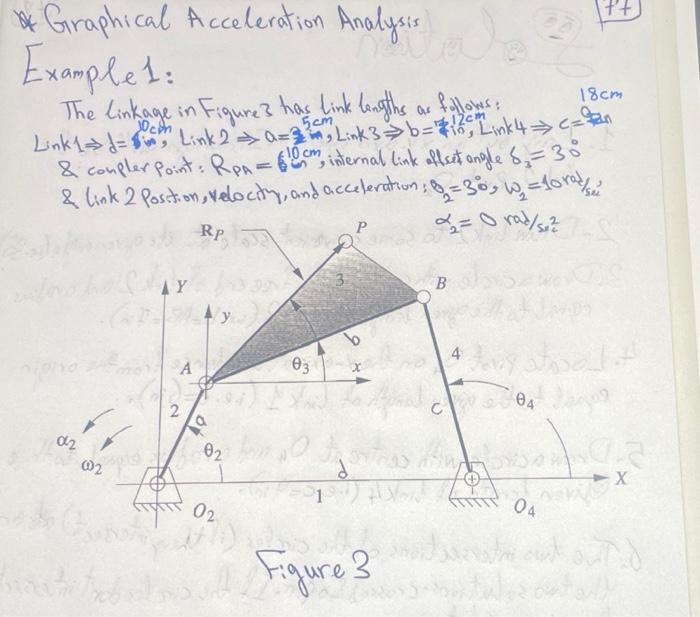 * Graphical Acceleration Analysis
Example 1:
The Linkage in Figure 3 has Link lengths as follows:
Link 1 ⇒ d = 10cm, Link 2 ⇒ a = 5cm, Link 3 ⇒ b = 12cm, Link 4 ⇒ c = 18cm
& coupler point: R_PA = 10cm, internal link offset angle δ₃ = 30°
& link 2 Position, velocity, and acceleration: θ₂ = 30°, ω₂ = 10 rad/sec,
α₂ = 0 rad/sec²
R_P
P
Y
3
B
y
b
A
θ₃
x
4
2
a
c
θ₄
α₂
ω₂
θ₂
d
X
1
O₂
O₄
Figure 3